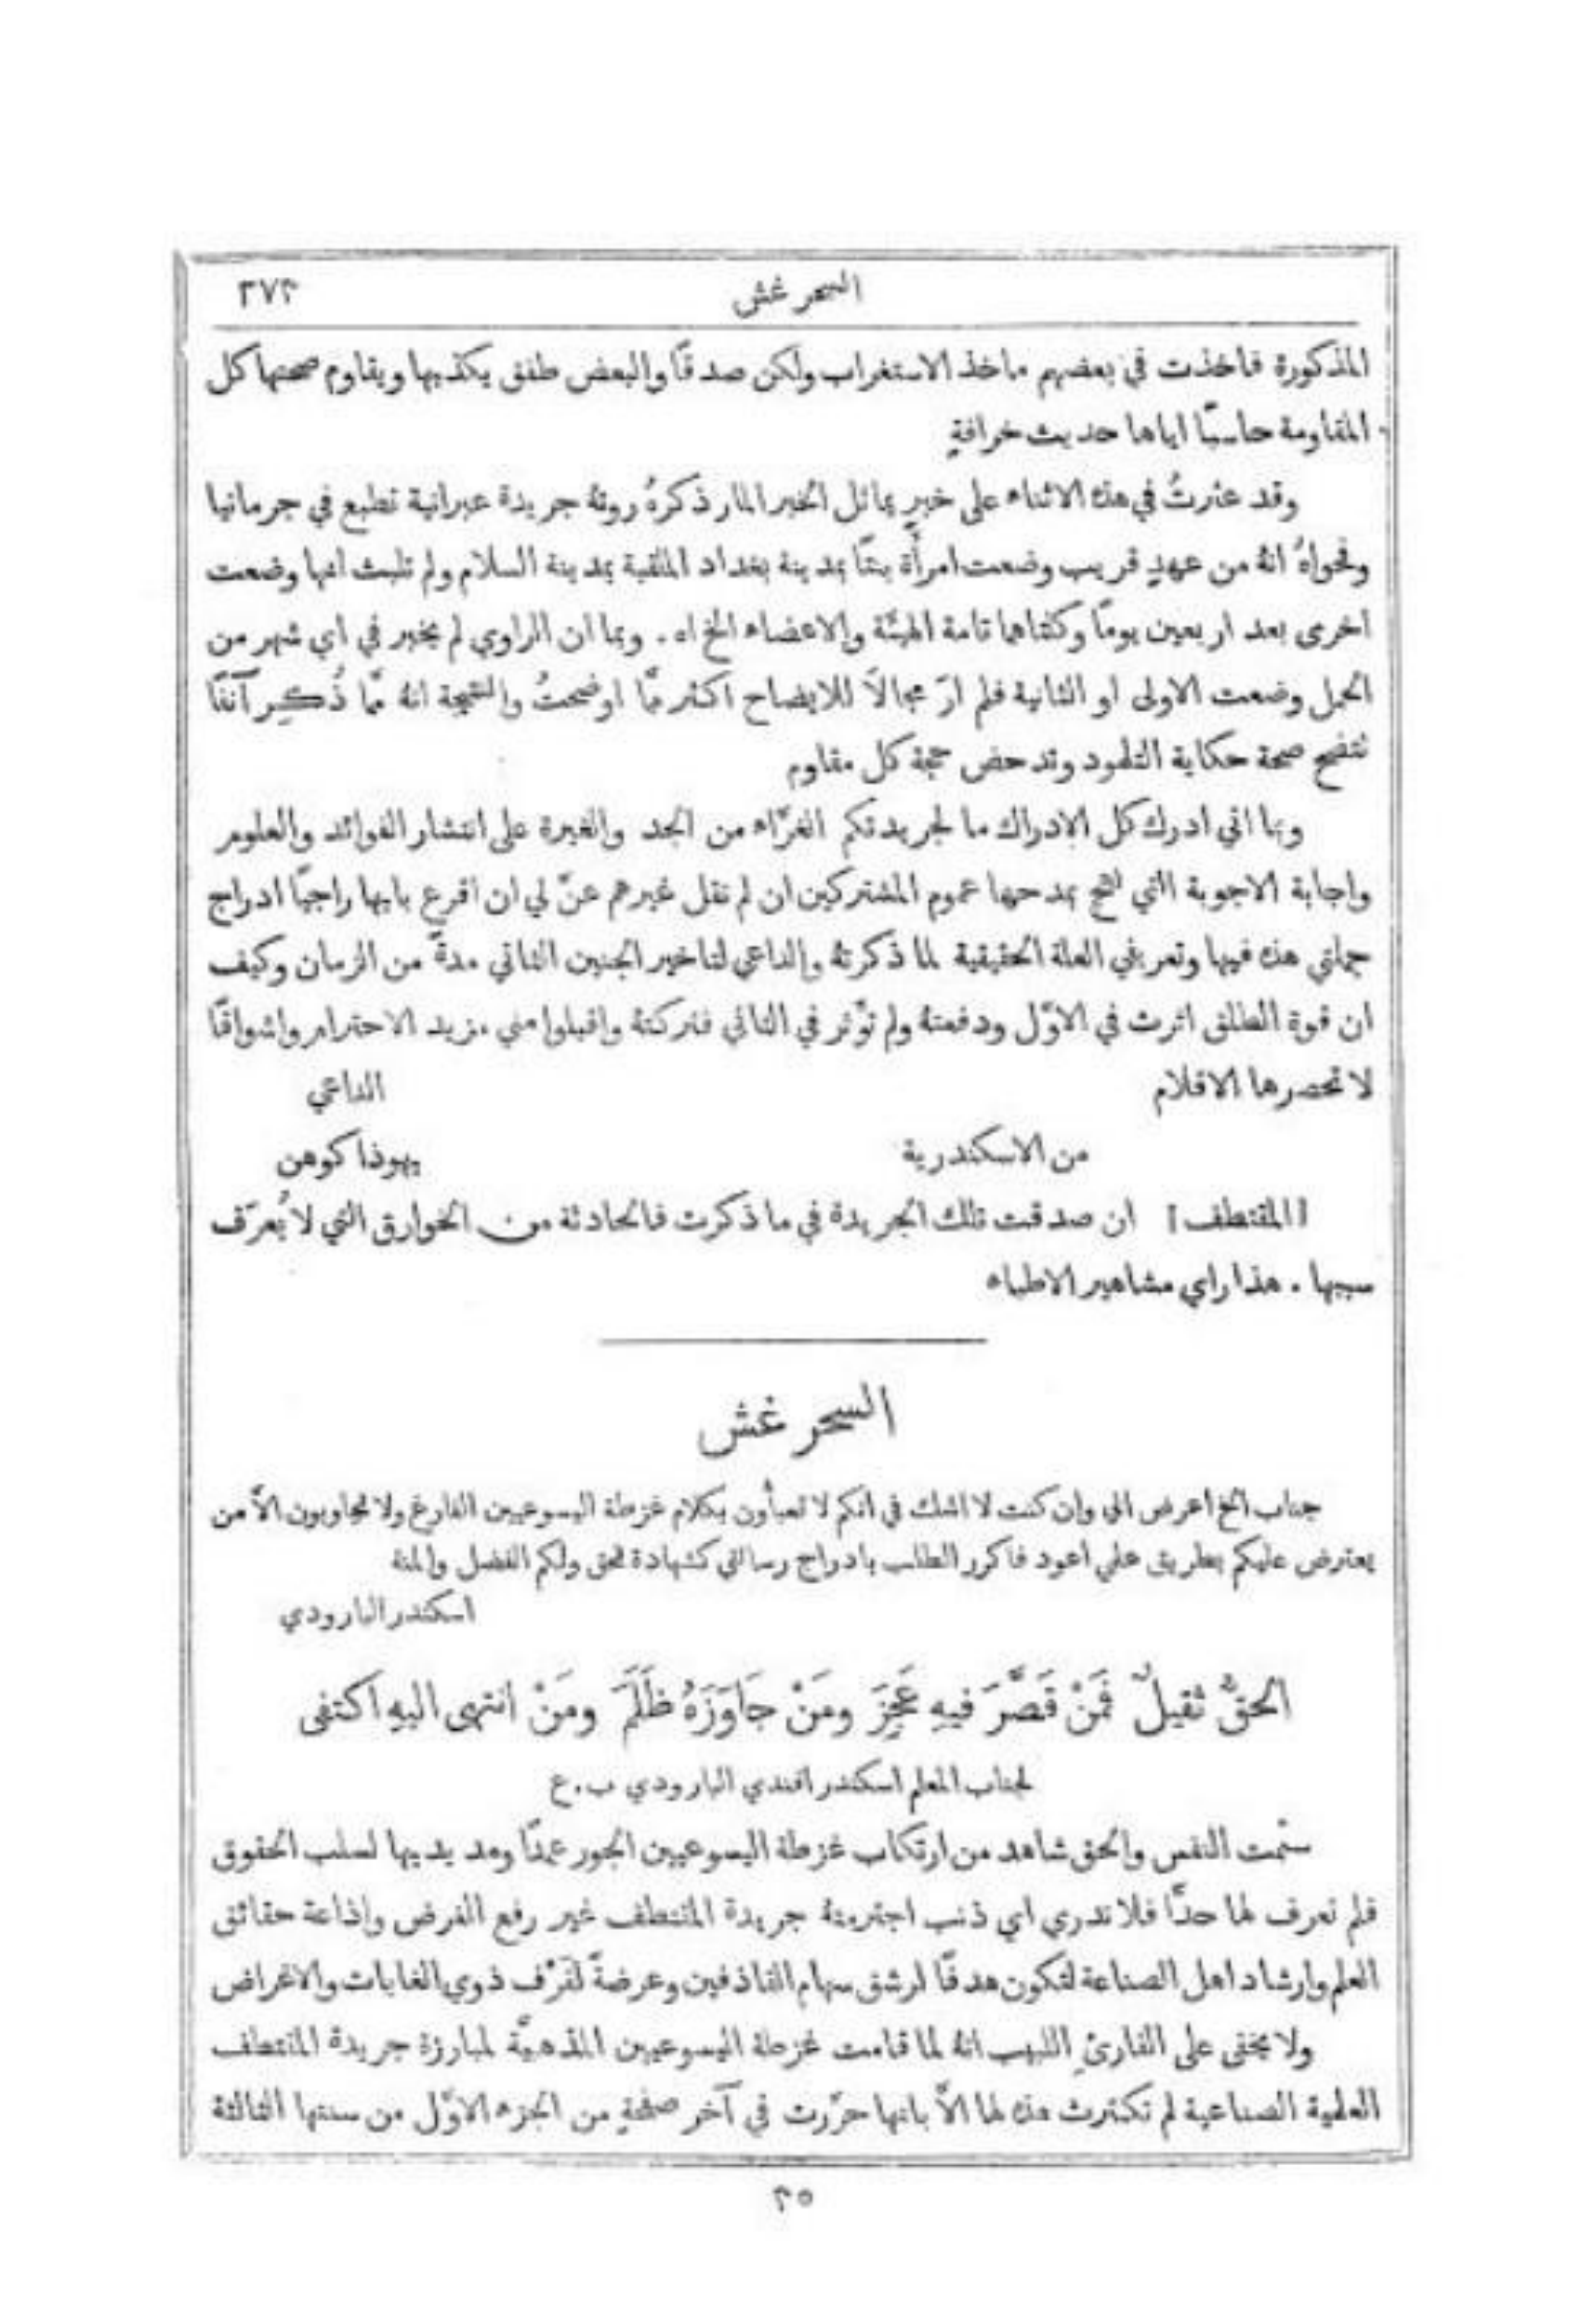 السحر غش ٢٧٣
المذكورة فاخذت في بعضهم ماخذ الاستغراب ولكن صدقًا والبعض طفق يكذبها ويقاوم صحتها كل
المقاومة حاسبًا اياها حديث خرافةٍ
وقد عثرتُ في هذه الاثناء على خبرٍ يماثل الخبر المار ذكرهُ روتهُ جريدة عبرانية تطبع في جرمانيا
وفحواهُ انهُ من عهدٍ قريب وضعت امرأة بنتًا بمدينة بغداد الملقبة بمدينة السلام ولم تلبث انها وضعت
اخرى بعد اربعين يومًا وكلتاهما تامة الهيئة والاعضاء الخ اه . وبما ان الراوي لم يخبر في اي شهر من
الحمل وضعت الاولى او الثانية فلم ارَ مجالاً للايضاح اكثر ممَّا اوضحتُ والنتيجة انهُ ممَّا ذُكِر آنفًا
تتضح صحة حكاية التلمود وتدحض حجة كل مقاوم
وبما اني ادرك كل الادراك ما لجريدتكم الغرَّاء من الجد والغيرة على انتشار الفوائد والعلوم
واجابة الاجوبة التي لهج بمدحها عموم المشتركين ان لم نقل غيرهم عنَّ لي ان اقرع بابها راجيًا ادراج
جملتي هذه فيها وتعريفي العلة الحقيقية لما ذكرتهُ والداعي لتاخير الجنين الثاني مدةً من الزمان وكيف
ان قوة الطلق اثرت في الاوَّل ودفعتهُ ولم تؤثر في الثاني فتركتهُ واقبلوا مني مزيد الاحترام واشواقًا
لا تحصرها الاقلام الداعي
من الاسكندرية يهوذا كوهن
[المقتطف] ان صدقت تلك الجريدة في ما ذكرت فالحادثة من الخوارق التي لا يُعرَف
سببها . هذا راي مشاهير الاطباء
السحر غش
جناب الخ اعرض الى وان كنت لا اشك في انكم لا تعبأون بكلام غزطة اليسوعيين الفارغ ولا تجاوبون الاَّ من
يعترض عليكم بطريق علمي اعود فاكرر الطلب بادراج رسالتي كشهادة للحق ولكم الفضل والمنة
اسكندر البارودي
الحقُّ ثقيلٌ فَمَنْ قَصَّرَ فيهِ عَجِزَ ومَنْ جَاوَزَهُ ظَلَمَ ومَنْ انتهى اليهِ اكتفى
لجناب المعلم اسكندر افندي البارودي ب.ع
سئمت النفس والحق شاهد من ارتكاب غزطة اليسوعيين الجور عمدًا ومد يديها لسلب الحقوق
فلم تعرف لها حدًّا فلا ندري اي ذنب اجترمتهُ جريدة المقتطف غير رفع الغرض واذاعة حقائق
العلم وارشاد اهل الصناعة لتكون هدفًا لرشق سهام القاذفين وعرضةً لقَرْف ذوي الغايات والاغراض
ولا يخفى على القارئِ اللبيب انهُ لما قامت غزطة اليسوعيين المذهبيَّة لمبارزة جريدة المقتطف
العلمية الصناعية لم تكترث هذه لها الاَّ بانها حرَّرت في آخر صفحةٍ من الجزء الاوَّل من سنتها الثالثة
٣٥